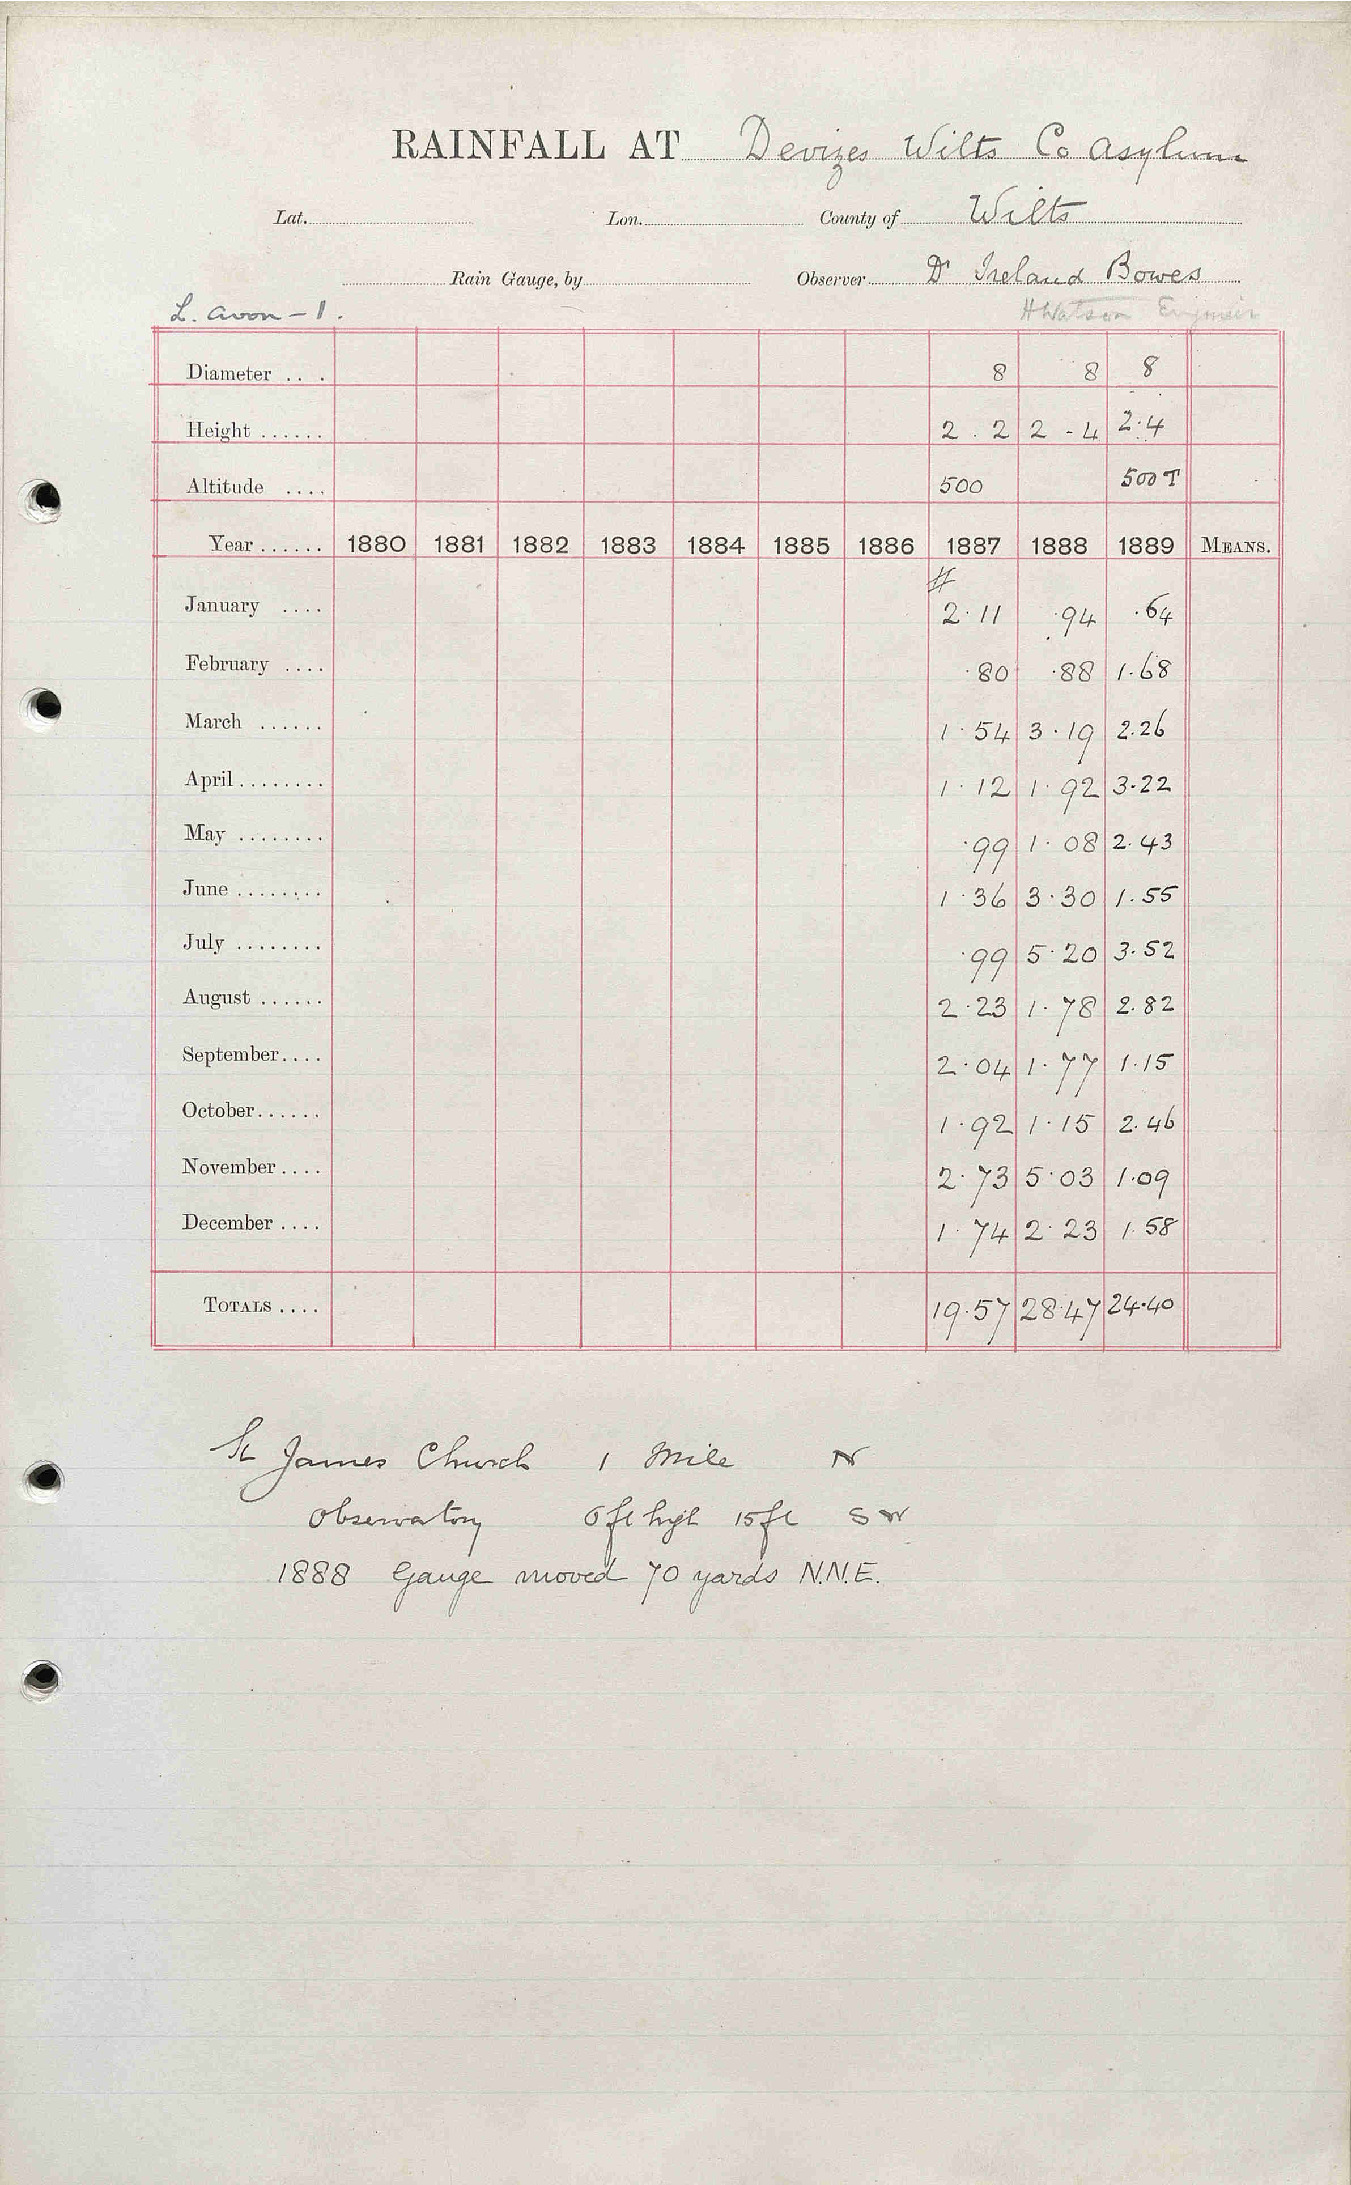 RAINFALL AT Devizes Wilts Co Asylum
Lat. Lon. County of Wilts
Rain Gauge, by Observer Dr Ireland Bowes
L. Avon - 1. H Watson Engineer
Diameter .... 8 8 8
Height ...... 2 . 2 2 - 4 2.4
Altitude .... 500 500 T
Year ...... 1880 1881 1882 1883 1884 1885 1886 1887 1888 1889 MEANS.
#
January .... 2.11 .94 .64
February .... .80 .88 1.68
March ...... 1.54 3.19 2.26
April ........ 1.12 1.92 3.22
May ........ .99 1.08 2.43
June ........ 1.36 3.30 1.55
July ........ .99 5.20 3.52
August ...... 2.23 1.78 2.82
September.... 2.04 1.77 1.15
October...... 1.92 1.15 2.46
November.... 2.73 5.03 1.09
December .... 1.74 2.23 1.58
TOTALS .... 19.57 28.47 24.40
St James Church 1 Mile N
Observatory 6 ft high 15 ft SW
1888 Gauge moved 70 yards N.N.E.